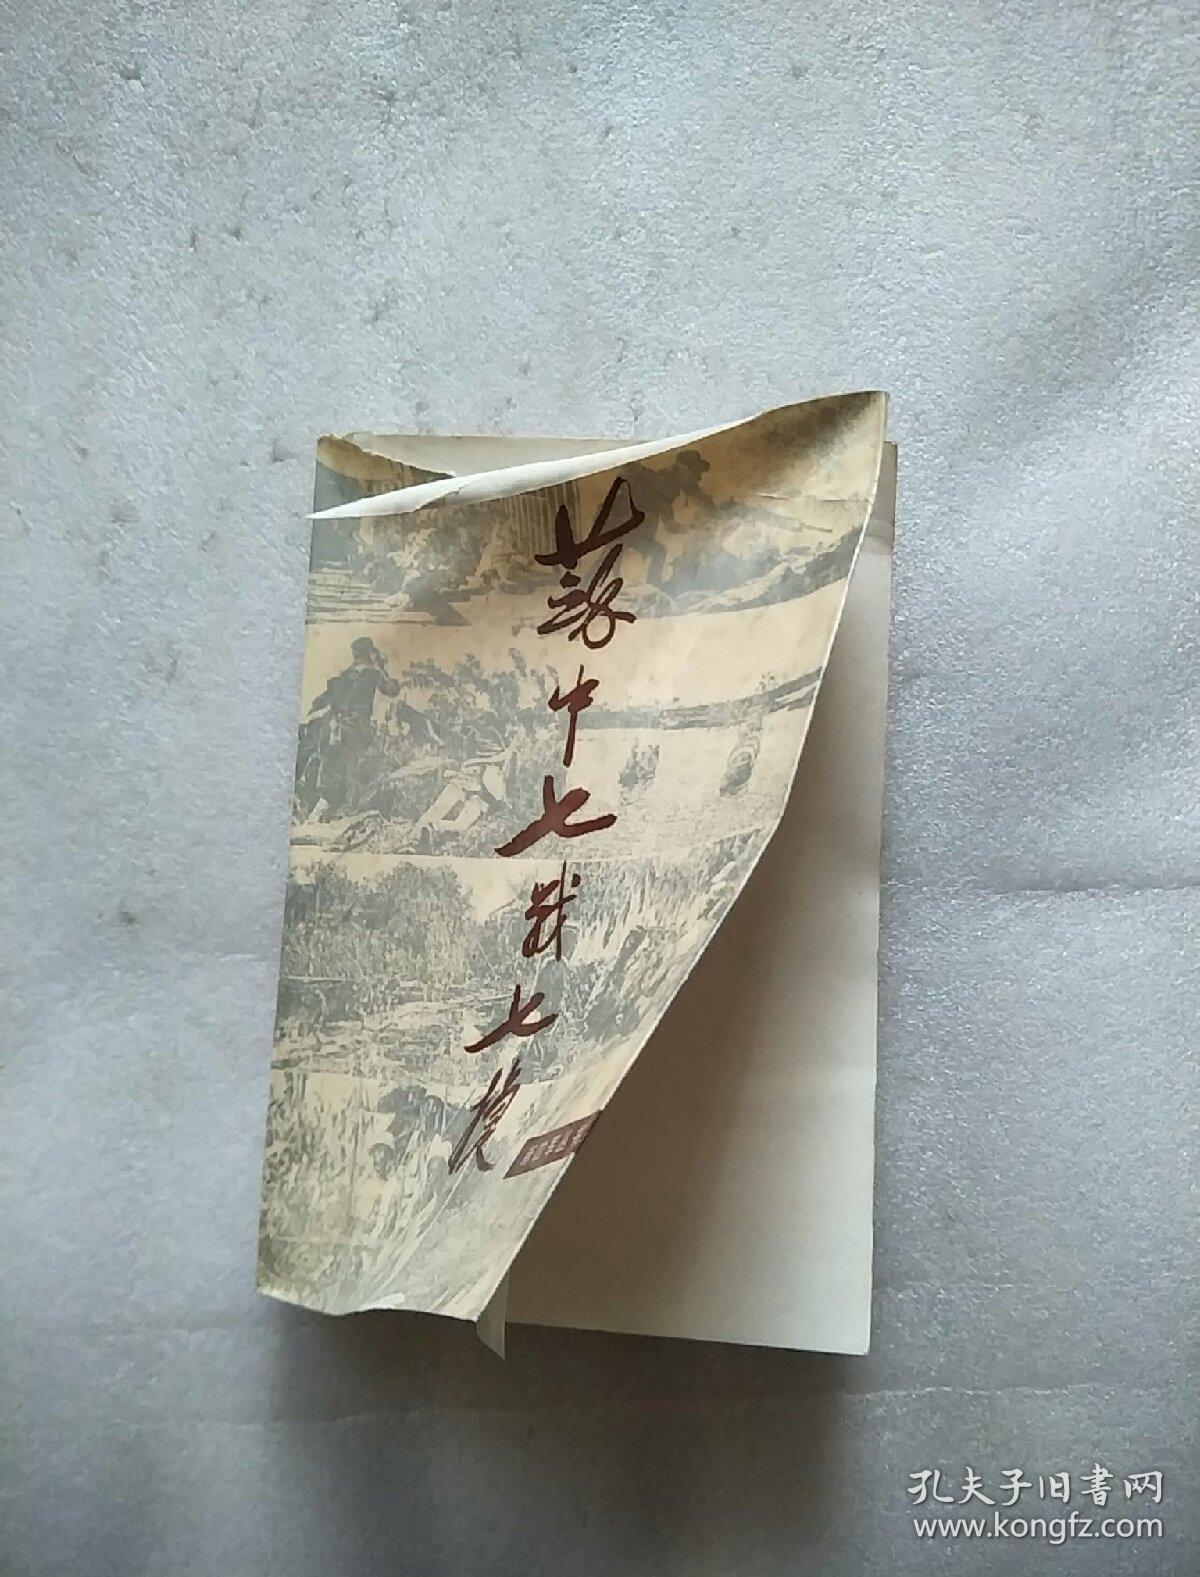 蘇中七战七捷
孔夫子旧書网
www.kongfz.com